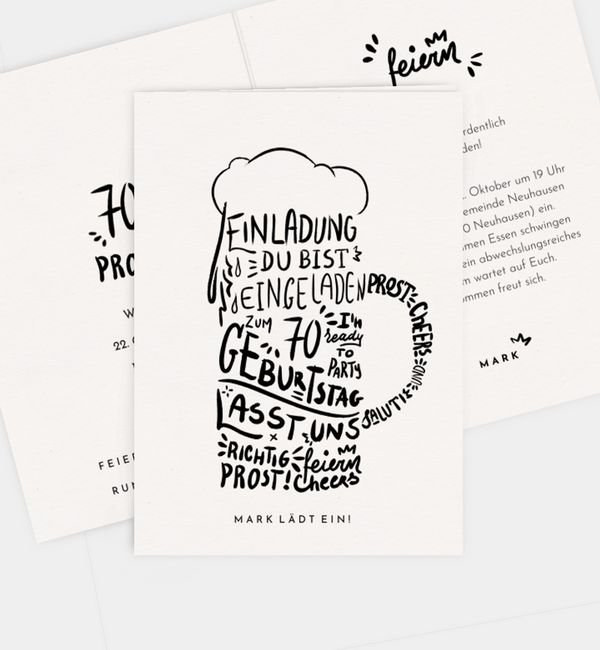 EINLADUNG
DU BIST
EINGELADEN
PROST CHEERS UND SALUT!
ZUM 70
GEBURTSTAG
I'm
ready
TO
PARTY
LASST UNS
RICHTIG feiern
PROST! Cheers
MARK LÄDT EIN!
70
PRO
W
22.
FEIER
RUN
feiern
rdentlich
den!
. Oktober um 19 Uhr
emeinde Neuhausen
0 Neuhausen) ein.
men Essen schwingen
ein abwechslungsreiches
m wartet auf Euch.
ommen freut sich.
MARK